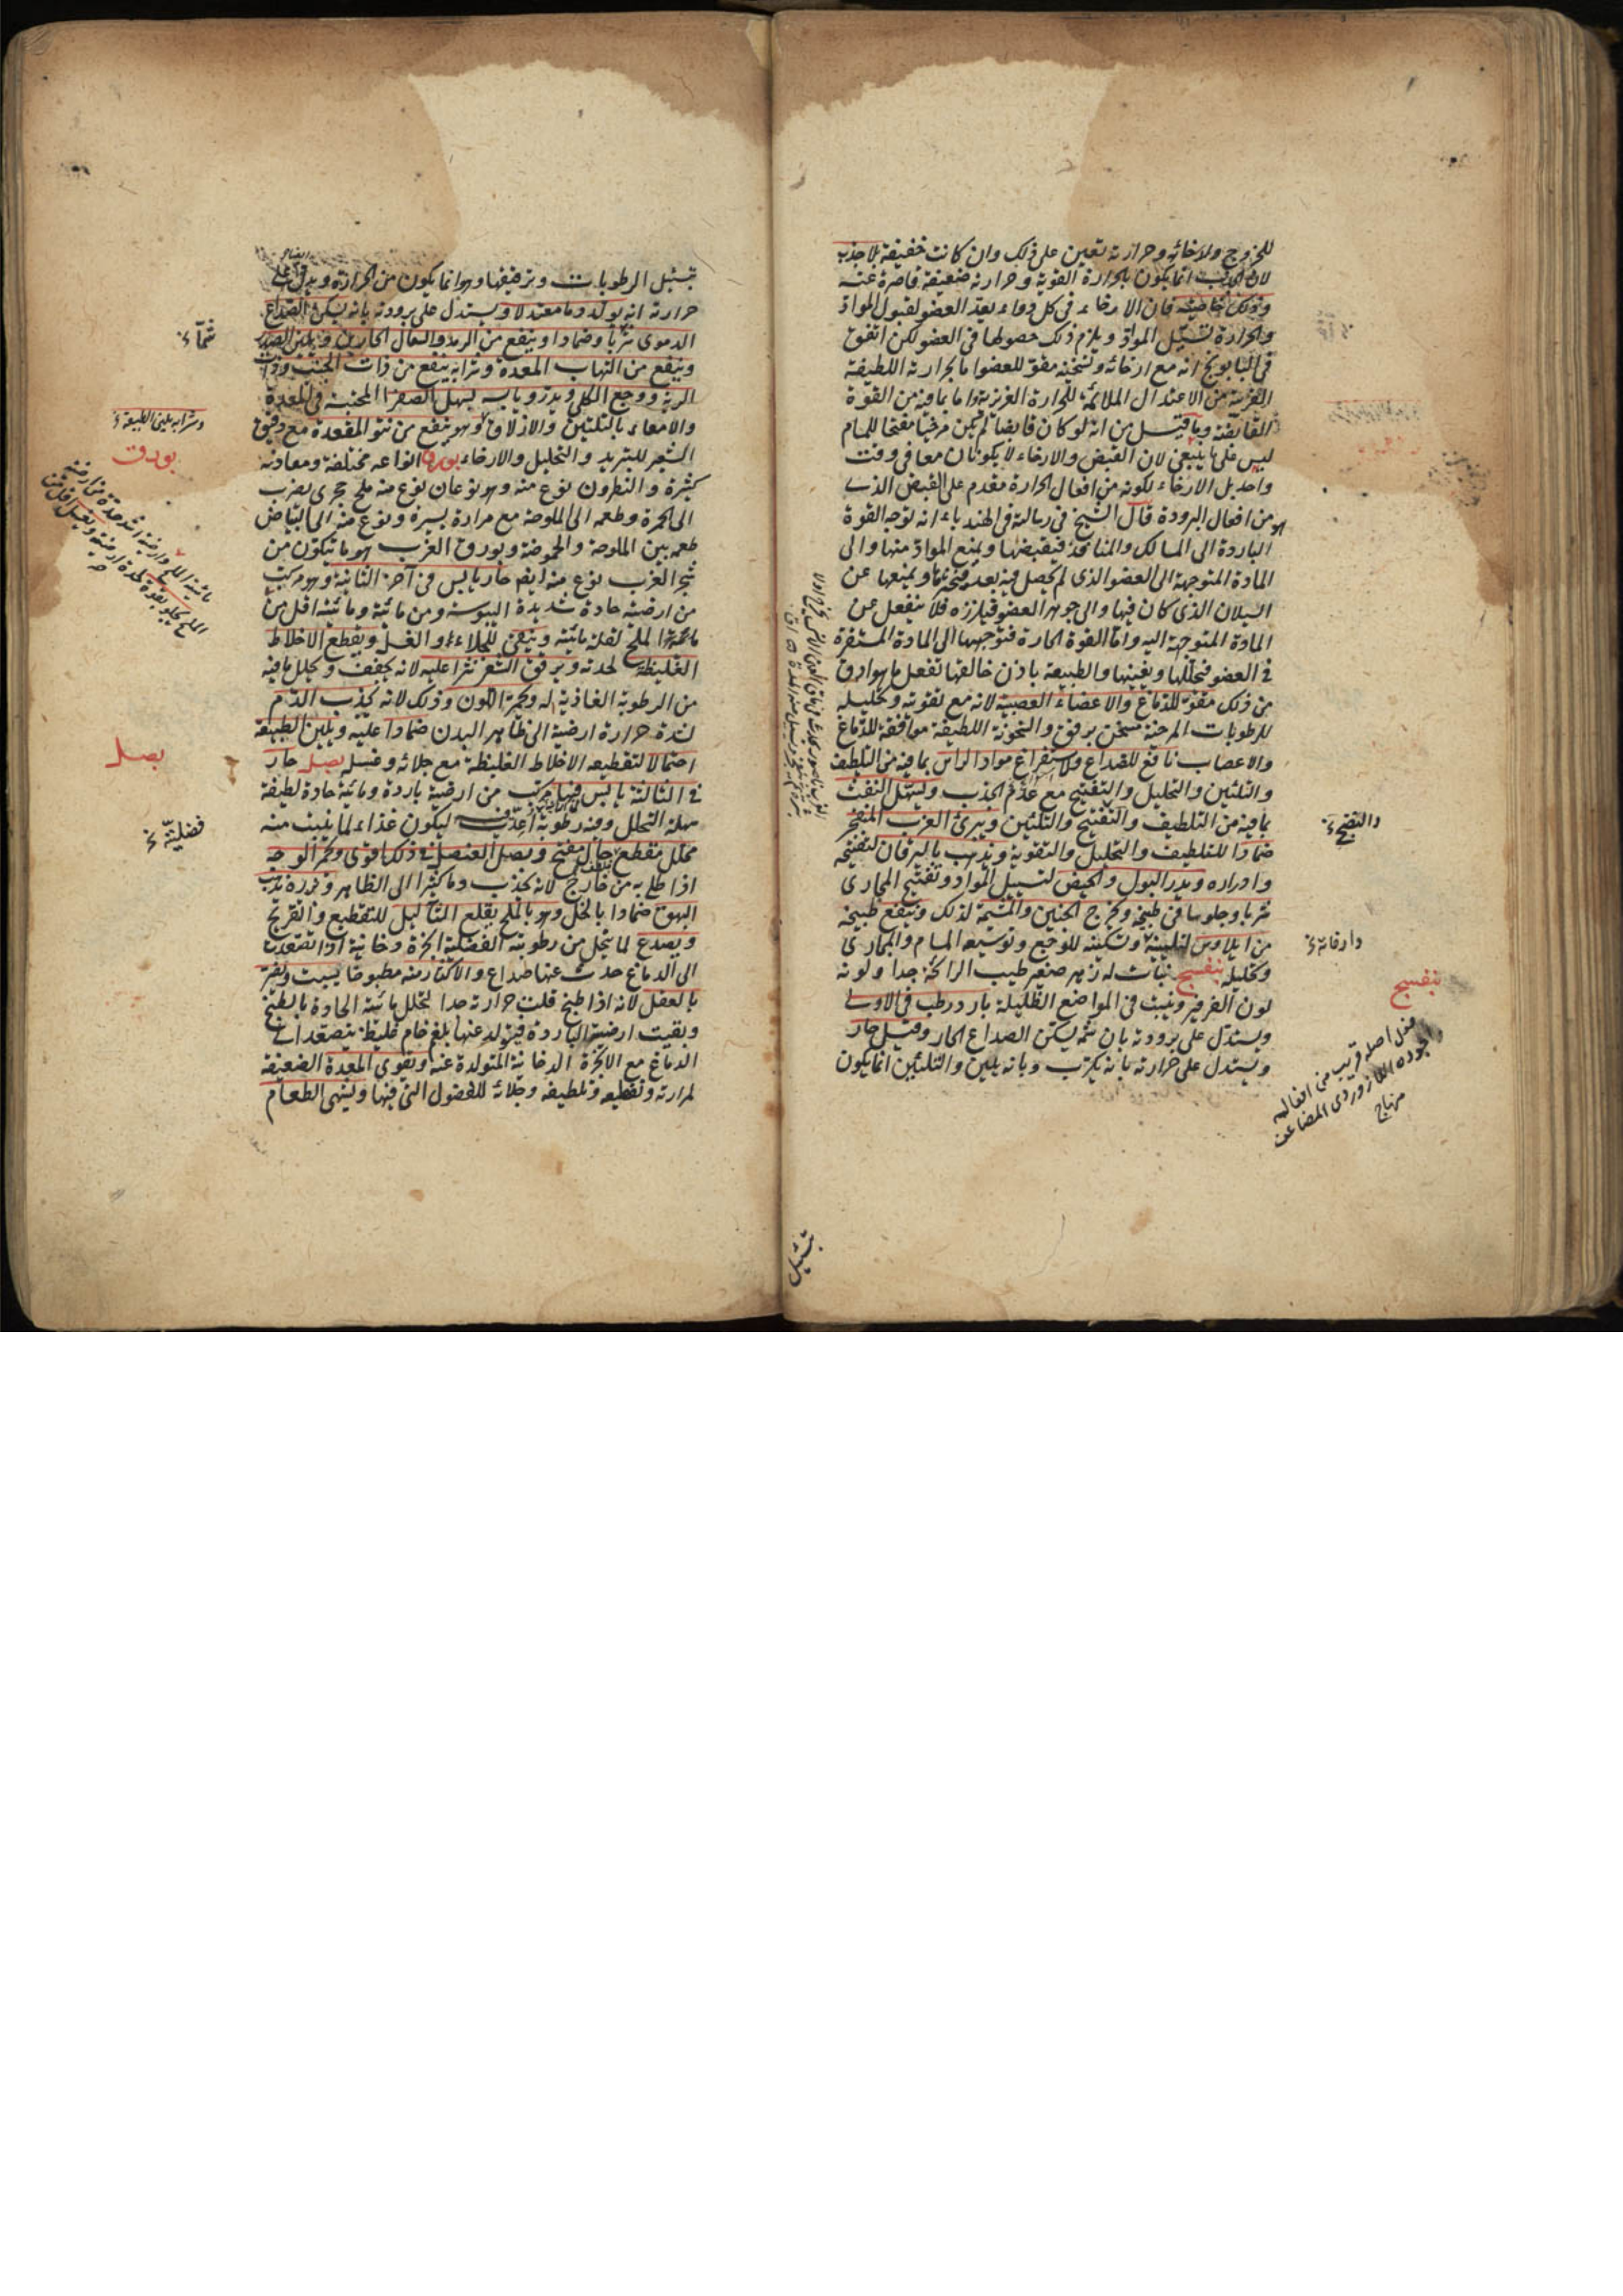 للخروج ولارخائه وحرارته تعين على ذلك وان كانت خفيفة بلا جذب
لان الجذب انما يكون بالحرارة القوية وحرارته ضعيفة قاصرة عنه
وذلك خاصيته فان الارخاء في كل دواء يعد العضو لقبول المواد
والحرارة تسيّل المواد ويلزم ذلك حصولها في العضو لكن اتفق
في البابونج انه مع ارخائه وتسخينه مقو للعضو اما بحرارته اللطيفة
القريبة من الاعتدال الملائمة للحرارة الغريزية واما بما فيه من القوة
القابضة وما قيل من انه لو كان قابضا لم يكن مرخيا مفتحا للمسام
ليس على ما ينبغي لان القبض والارخاء لا يكونان معا في وقت
واحد بل الارخاء لكونه من افعال الحرارة مقدم على القبض الذي
هو من افعال البرودة قال الشيخ في رسالته في الهندباء انه توجه القوة
الباردة الى المسالك والمنافذ فيقبضها ويمنع المواد منها والى
المادة المتوجهة الى العضو الذي لم يحصل فيه بعد ويمنعها عن
السيلان الذي كان فيها والى جوهر العضو فيلززه فلا ينفعل عن
المادة المتوجهة اليه واما القوة الحارة فتوجهها الى المادة المستقرة
في العضو فتحللها ويفنيها والطبيعة باذن خالقها تفعل ما هو ادق
من ذلك مقو للدماغ والاعضاء العصبية لانه مع تقويته وتحليله
للرطوبات المرخية مسخن برفق والسخونة اللطيفة موافقة للدماغ
والاعصاب نافع للصداع ولاستفراغ مواد الراس بما فيه من التلطيف
والتليين والتحليل والتفتيح مع عدم الجذب وليسهل النفث
بما فيه من التلطيف والتفتيح والتليين ويبرئ الغرب المنفجر
ضمادا للتلطيف والتحليل والتقوية ويذهب باليرقان لتفتيحه
وادراره ويدر البول والحيض لتسييل المواد وتفتيح المجاري
شربا وجلوسا في طبيخه ويخرج الجنين والمشيمة لذلك وينفع طبيخه
من ايلاوس لتليينه وتسكينه للوجع وتوسيعه المسام والمجاري
وتحليله بنفسج نبات له زهر صغير طيب الرائحة جدا ولونه
لون الفرفير وينبت في المواضع الظليلة بارد رطب في الاولى
ويستدل على برودته بان شمه يسكن الصداع الحار وقيل حار
ويستدل على حرارته بانه يكرب وبانه يلين والتليين انما يكون
والنضج
وارخائه
بنفسج
اصله قريب من افعاله
اجوده اللازوردي المضاعف
منهاج
بتسييل
بتسييل الرطوبات وترقيقها وهو انما يكون من الحرارة ويدل على
حرارته انه يولد دما معتدلا ويستدل على برودته بانه يسكن الصداع
الدموي شربا وضمادا وينفع من الرمد والسعال الحارين ويلين الصدر
وينفع من التهاب المعدة وشرابه ينفع من ذات الجنب وذات
الرية ووجع الكلى ويدر ويابسه يسهل الصفرا المحتبسة في المعدة
والامعاء بالتليين والازلاق وهو ينفع من نتو المقعدة مع دقيق
الشعير للتبريد والتحليل والارخاء بورق انواعه مختلفة ومعادنه
كثيرة والنطرون نوع منه وهو نوعان نوع منه ملح حجري يضرب
الى الحمرة وطعمه الى الملوحة مع مرارة يسيرة ونوع منه الى البياض
طعمه بين الملوحة والحموضة وبورق الغرب هو ما يتكون من
شجر الغرب نوع منه ايضا حار يابس في آخر الثانية وهو مركب
من ارضية حادة شديدة اليبوسة ومن مائية ومائيته اقل من
مائية الملح لقلة مائيته وينقي للجلاء والغسل ويقطع الاخلاط
الغليظة لحدته ويرقق الشعر نثرا عليه لانه يجفف ويحلل ما فيه
من الرطوبة الغاذية له ويحمر اللون وذلك لانه يجذب الدم
لشدة حرارة ارضية الى ظاهر البدن ضمادا عليه ويلين الطبيعة
احتمالا لتقطيعه الاخلاط الغليظة مع جلائه وغسله بصل حار
في الثالثة يابس فيها مركب من ارضية باردة ومائية حادة لطيفة
سهلة التحلل وفيه رطوبة اعدت ليكون غذاء لما ينبت منه
محلل مقطع جال مفتح وبصل العنصل في ذلك اقوى ويحمر الوجه
اذا طلي به من خارج لانه يجذب دما كثيرا الى الظاهر وبزره يذهب
البهق ضمادا بالخل وهو بالملح يقلع الثآليل للتقطيع والتقريح
ويصدع لما يتحلل من رطوبته الفضلية ابخرة دخانية اذا تصعدت
الى الدماغ حدث عنها صداع والاكثار منه مطبوخا يسبت ويضر
بالعقل لانه اذا طبخ قلت حرارته جدا لتحلل مائيته الحادة بالطبخ
وبقيت ارضيته الباردة فيتولد عنها بلغم خام غليظ يتصعد الى
الدماغ مع الابخرة الدخانية المتولدة عنه ويقوي المعدة الضعيفة
لمرارته وتقطيعه وتلطيفه وجلائه للفضول التي فيها ويشهي الطعام
شمّا
وشرابه يلين الطبيعة
بورق
بصل
فضلية